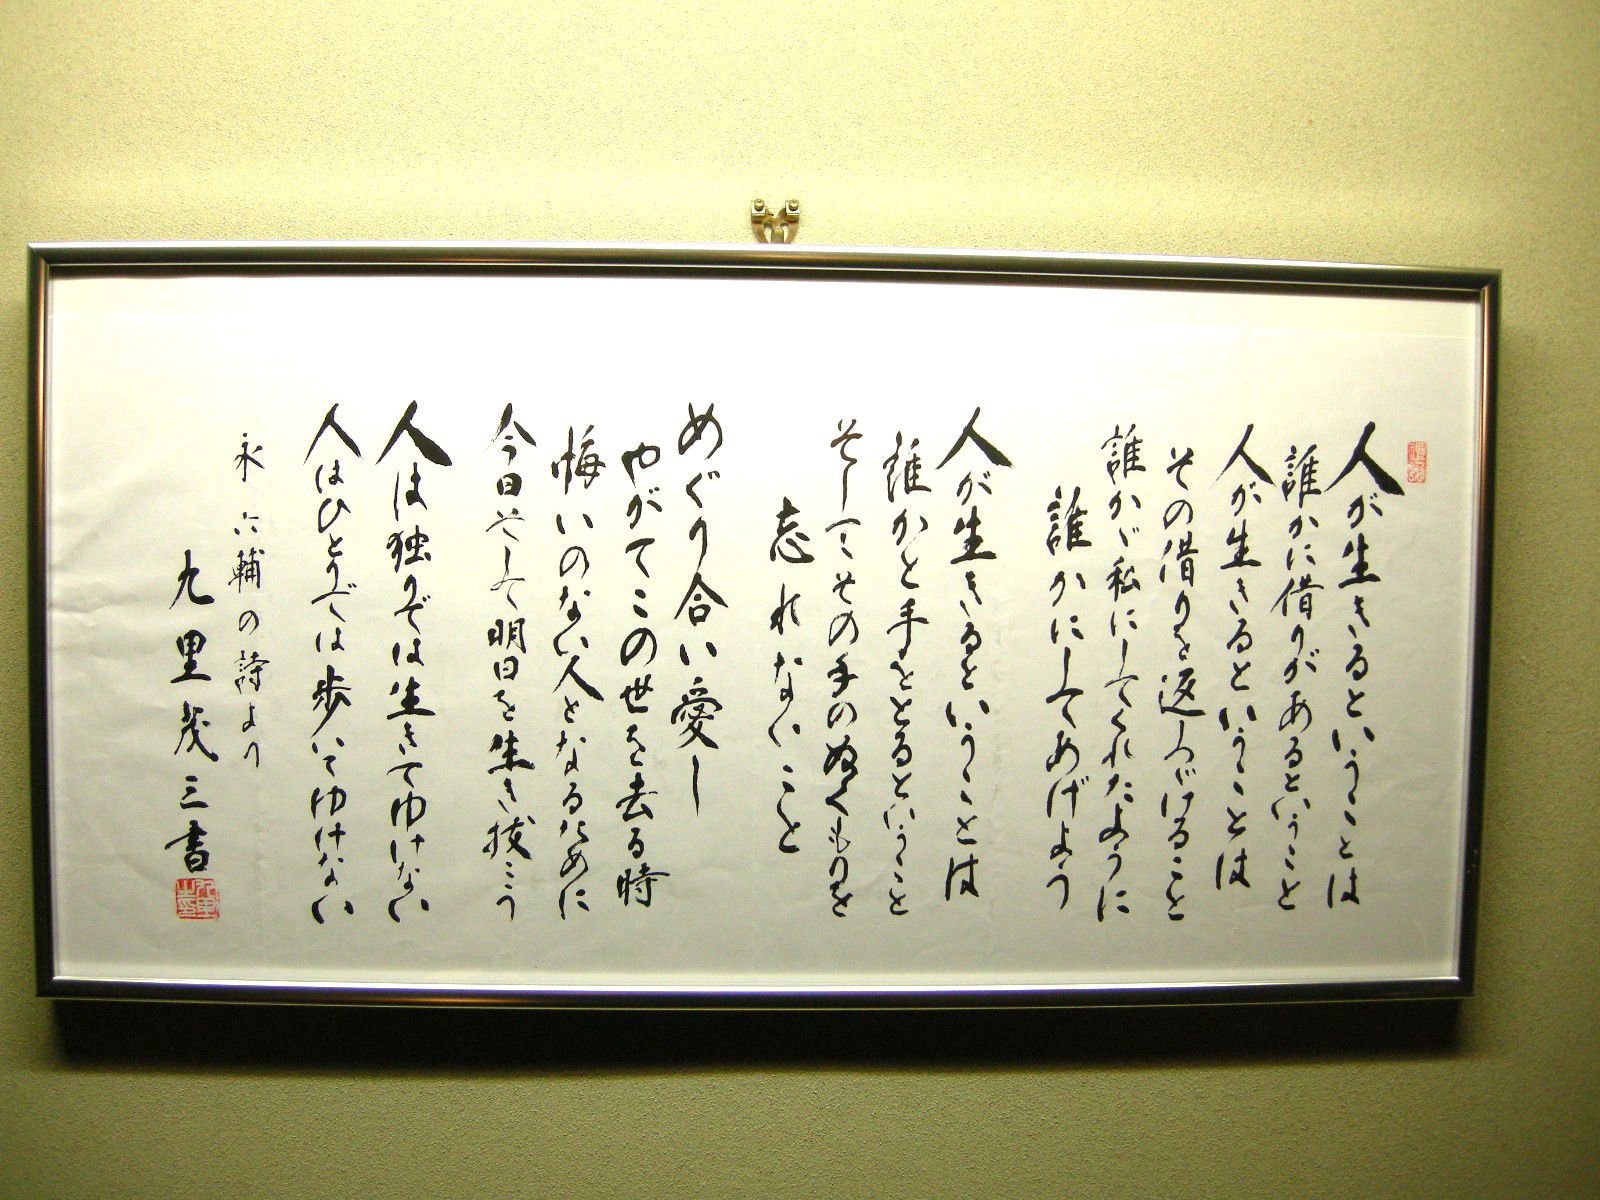 人が生きるということは
誰かに借りがあるということ
人が生きるということは
その借りを返しつづけること
誰かが私にしてくれたように
誰かにしてあげよう
人が生きるということは
誰かと手をとるということ
そしてその手のぬくもりを
忘れないこと
めぐり合い愛し
やがてこの世を去る時
悔いのない人となるために
今日そして明日を生き抜こう
人は独りでは生きてゆけない
人はひとりでは歩いてゆけない
永六輔の詩より
九里茂三書